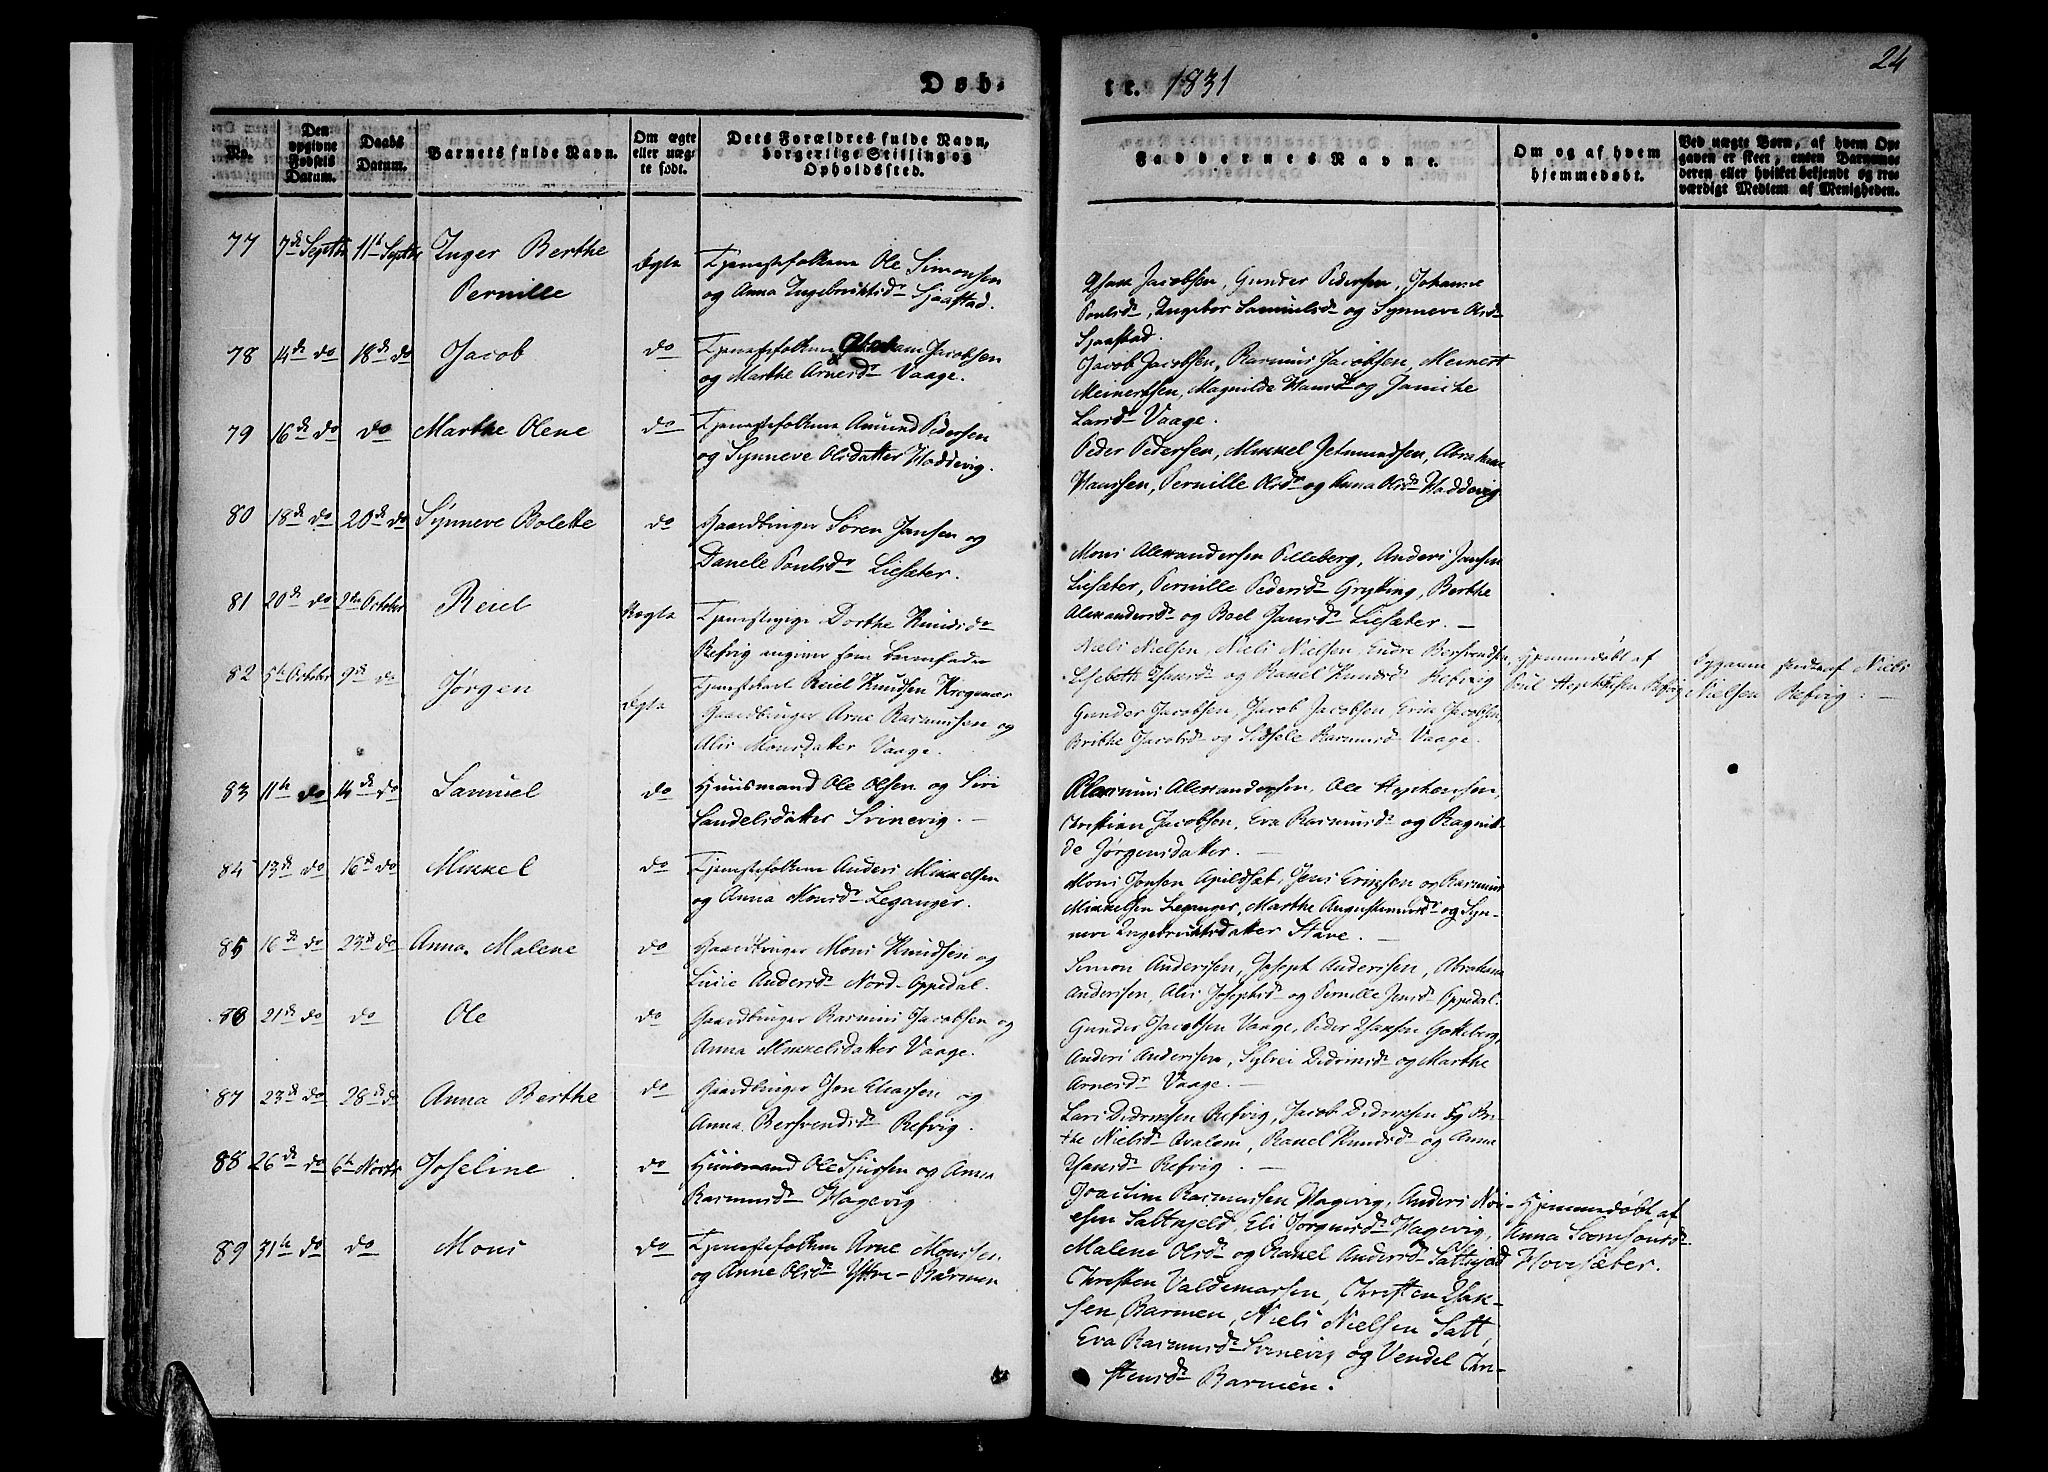 24
Døb-
te. 1831
No.
Den opgivne Fødsels Datum.
Daabs Datum.
Barnets fulde Navn.
Om ægte eller uægte født.
Dets Forældres fulde Navn, borgerlige Stilling og Opholdssted.
Faddernes Navne.
Om og af hvem hjemmedøbt.
Ved uægte Børn, af hvem Opgaven er skeet, enten Barnemoderen eller hvilket bekjendt og troværdigt Medlem af Menigheden.
77 7de Septbr 11te Septbr Inger Berthe Pernille Ægte
Tjenestefolkene Ole Simonsen
og Anna Ingebrictsd. Sjaastad.
Isak Jacobsen, Gunder Pedersen, Johanne
Poulsd., Ingebor Samuelsd. og Synneve Olsd.
Sjaastad.
78 14de do 18de do Jacob do
Tjenestefolkene Abraham Jacobsen
og Marthe Arnesd. Vaage.
Jacob Jacobsen, Rasmus Jacobsen, Meinert
Meinertsen, Magnilde Hansd. og Janiche
Larsd. Vaage.
79 16de do do Marthe Olene do
Tjenestefolkene Amund Pedersen
og Synneve Olsdatter Hoddevig.
Peder Pedersen, Mikkel Jetmundsen, Abraham
Hanssen, Pernille Olsd. og Anna Olsd. Hoddevig
80 18de do 20de do Synneve Bolette do
Gaardbruger Søren Jansen og
Danele Poulsd. Liesæter.
Mons Alexandersen Pilleberg, Anders Jansen
Liesæter, Pernille Pedersd. Gryting, Berthe
Alexandersd. og Boel Jansd. Liesæter. —
81 20de do 2den October Reiel Uægte
Tjenestepige Dorthe Knudsd.
Refvig angiver som Barnefader
Tjenestekarl Reiel Knudsen
Niels Nielsen, Niels Nielsen, Endre Bersvendsen,
Lisebeth Isaksd. og Ranel Knudsd. Refvig
Hjemmedøbt af
Poul Stephensen Refvig
Opgaven skeet af Niels
Nielsen Refvig. —
82 5te October 9de do Jørgen Ægte
Gaardbruger Arne Rasmussen og
Alis Monsdatter Vaage.
Gunder Jacobsen, Jacob Jacobsen, Erik Jacobsen,
Brithe Jacobsd. og Sidsele Rasmusd. Vaage.
83 11te do 14de do Samuel do
Huusmand Ole Olsen og Siri
Sandelsdatter Svinevig. —
Rasmus Alexandersen, Ole Stephensen,
Christian Jacobsen, Eva Rasmusd. og Ragnil-
de Jørgensdatter. —
84 13de do 16de do Mikkel do
Tjenestefolkene Anders Mikkelsen
og Anna Monsd. Leganger.
Mons Jonsen Apildsæt, Jens Eriksen og Rasmus
Mikkelsen Leganger, Marthe Augustinusd. og Syn-
neve Ingebrictsdatter Stave. —
85 16de do 23de do Anna Malene do
Gaardbruger Mons Knudsen og
Lisie Andersd. Nord-Oppedal.
Simon Anderssen, Joseph Anderssen, Abraham
Anderssen, Alis Josephsd. og Pernille Jensd. Oppedal.
86 21de do do Ole do
Gaardbruger Rasmus Jacobsen og
Anna Mikkelsdatter Vaage.
Gunder Jacobsen Vaage, Peder Isaksen Gotteberg,
Anders Anderssen, Sylvei Didriksd. og Marthe
Arnesd. Vaage. —
87 23de do 28de do Anna Berthe do
Gaardbruger Jon Eliassen og
Anna Bersvendsd. Refvig.
Lars Didriksen Refvig, Jacob Didriksen og Bri-
the Nielsd. Qvalem, Ranel Knudsd. og Anna
Isaksd. Refvig. —
88 26de do 6te Novbr Joseline do
Huusmand Ole Sjursen og Anna
Rasmusd. Hagevig
Joachim Rasmussen Hagevig, Anders Nil-
sen Saltkjeld, Eli Jørgensd. Hagevig,
Malene Olsd. og Ranel Andersd. Saltkjeld
Hjemmedøbt af
Anna Samsonsd.
Hovesæter.
89 31te do do Mons do
Tjenestefolkene Arne Monssen
og Anne Olsd. Yttre-Barmen
Christen Valdemarsen, Christen Isak-
sen Barmen, Niels Nielsen Salt,
Eva Rasmusd. Svinevig og Vendel Chri-
stensd. Barmen.